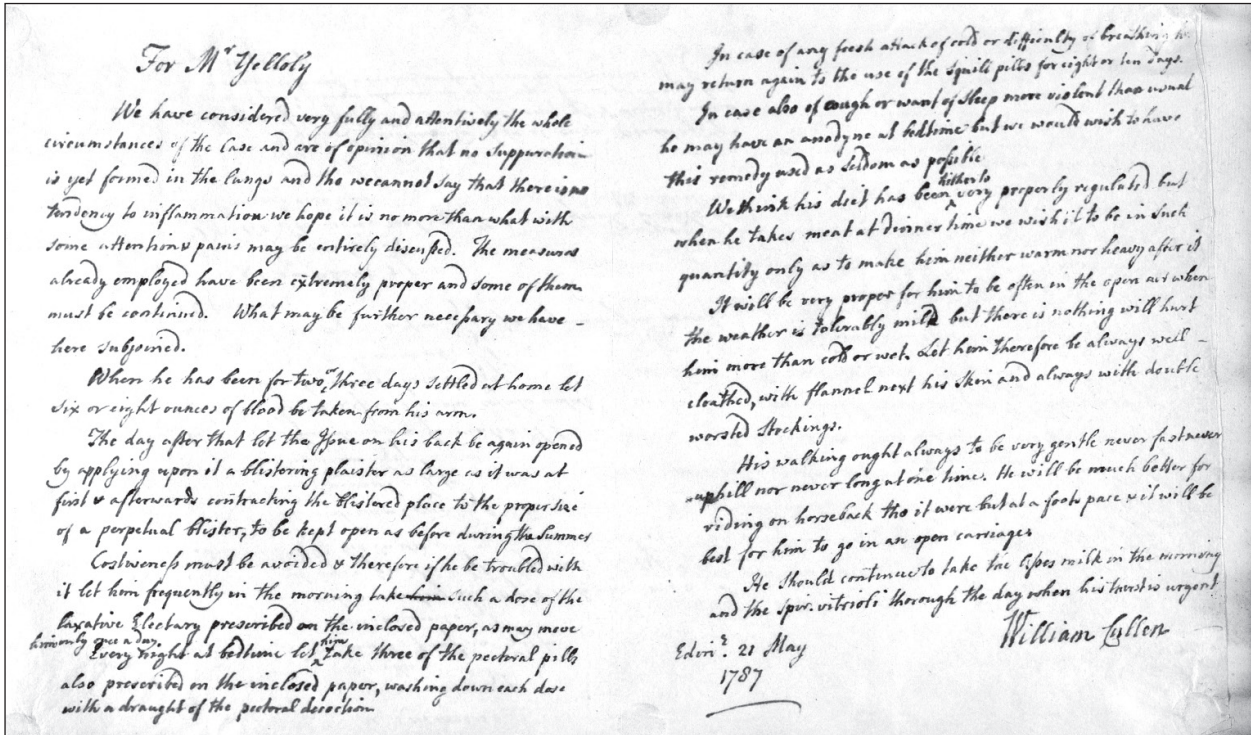 For Mr Yelloly
We have considered very fully and attentively the whole
circumstances of the Case and are of opinion that no Suppuration
is yet formed in the lungs and tho we cannot say that there is no
tendency to inflammation we hope it is no more than what with
some attention & pains may be entirely discussed. The measures
already employed have been extremely proper and some of them
must be continued. What may be further necessary we have
here subjoined.
When he has been for two or three days settled at home let
six or eight ounces of blood be taken from his arm.
The day after that let the Issue on his back be again opened
by applying upon it a blistering plaister as large as it was at
first & afterwards contracting the blistered place to the proper size
of a perpetual blister, to be kept open as before during the Summer
Costiveness must be avoided & therefore if he be troubled with
it let him frequently in the morning take him such a dose of the
laxative Electary prescribed on the inclosed paper, as may move
him only once a day.
Every night at bedtime let him take three of the pectoral pills
also prescribed on the inclosed paper, washing down each dose
with a draught of the pectoral decoction
In case of any fresh attack of cold or difficulty of breathing he
may return again to the use of the squill pills for eight or ten days.
In case also of cough or want of sleep more violent than usual
he may have an anodyne at bedtime but we would wish to have
this remedy used as seldom as possible
We think his diet has been hitherto very properly regulated but
when he takes meat at dinner time we wish it to be in such
quantity only as to make him neither warm nor heavy after it
It will be very proper for him to be often in the open air when
the weather is tolerably mild but there is nothing will hurt
him more than cold or wet. Let him therefore be always well
cloathed, with flannel next his skin and always with double
worsted stockings.
His walking ought always to be very gentle never fast never
uphill nor never long at one time. He will be much better for
riding on horseback tho it were but at a foots pace & it will be
best for him to go in an open carriage
He should continue to take the asses milk in the morning
and the spir. vitrioli thorough the day when his thirst is urgent
William Cullen
Edinr. 21 May
1787